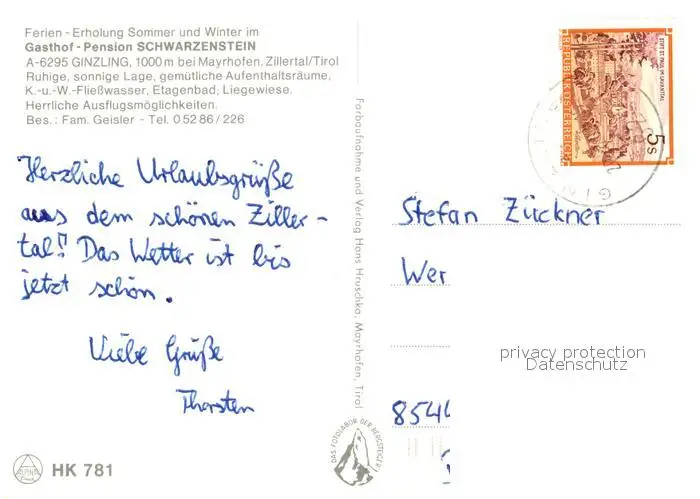 Ferien - Erholung Sommer und Winter im
Gasthof - Pension SCHWARZENSTEIN
A-6295 GINZLING, 1000 m bei Mayrhofen, Zillertal/Tirol
Ruhige, sonnige Lage, gemütliche Aufenthaltsräume,
K.-u.-W.-Fließwasser, Etagenbad; Liegewiese.
Herrliche Ausflugsmöglichkeiten.
Bes.: Fam. Geisler - Tel. 0 52 86 / 226
Herzliche Urlaubsgrüße
aus dem schönen Ziller-
tal! Das Wetter ist bis
jetzt schön.
Viele Grüße
Thorsten
HK 781
Farbaufnahme und Verlag Hans Hruschka, Mayrhofen, Tirol
DAS FOTOLABOR DER BERGSTEIGER
REPUBLIK ÖSTERREICH
STIFT ST. PAUL IM LAVANTTAL
5 S
Stefan Zückner
Wer
privacy protection
Datenschutz
8544